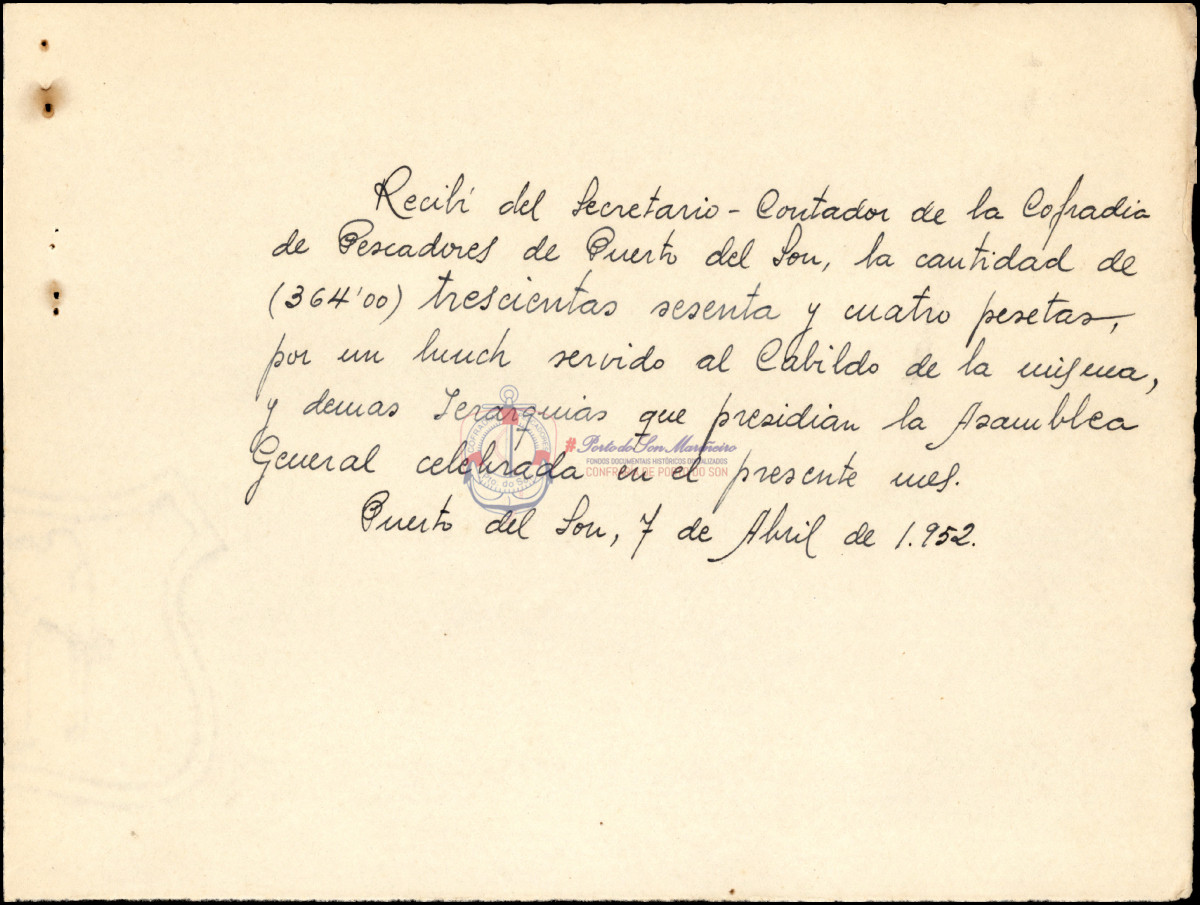 Recibí del Secretario-Contador de la Cofradia
de Pescadores de Puerto del Son, la cantidad de
(364'00) trescientas sesenta y cuatro pesetas,
por un lunch servido al Cabildo de la misma,
y demas Jerarquias que presidian la Asamblea
General celebrada en el presente mes.
Puerto del Son, 7 de Abril de 1.952.
#Porto do Son Mariñeiro
FONDOS DOCUMENTAIS HISTÓRICOS DIXITALIZADOS
CONFRARÍA DE PORTO DO SON